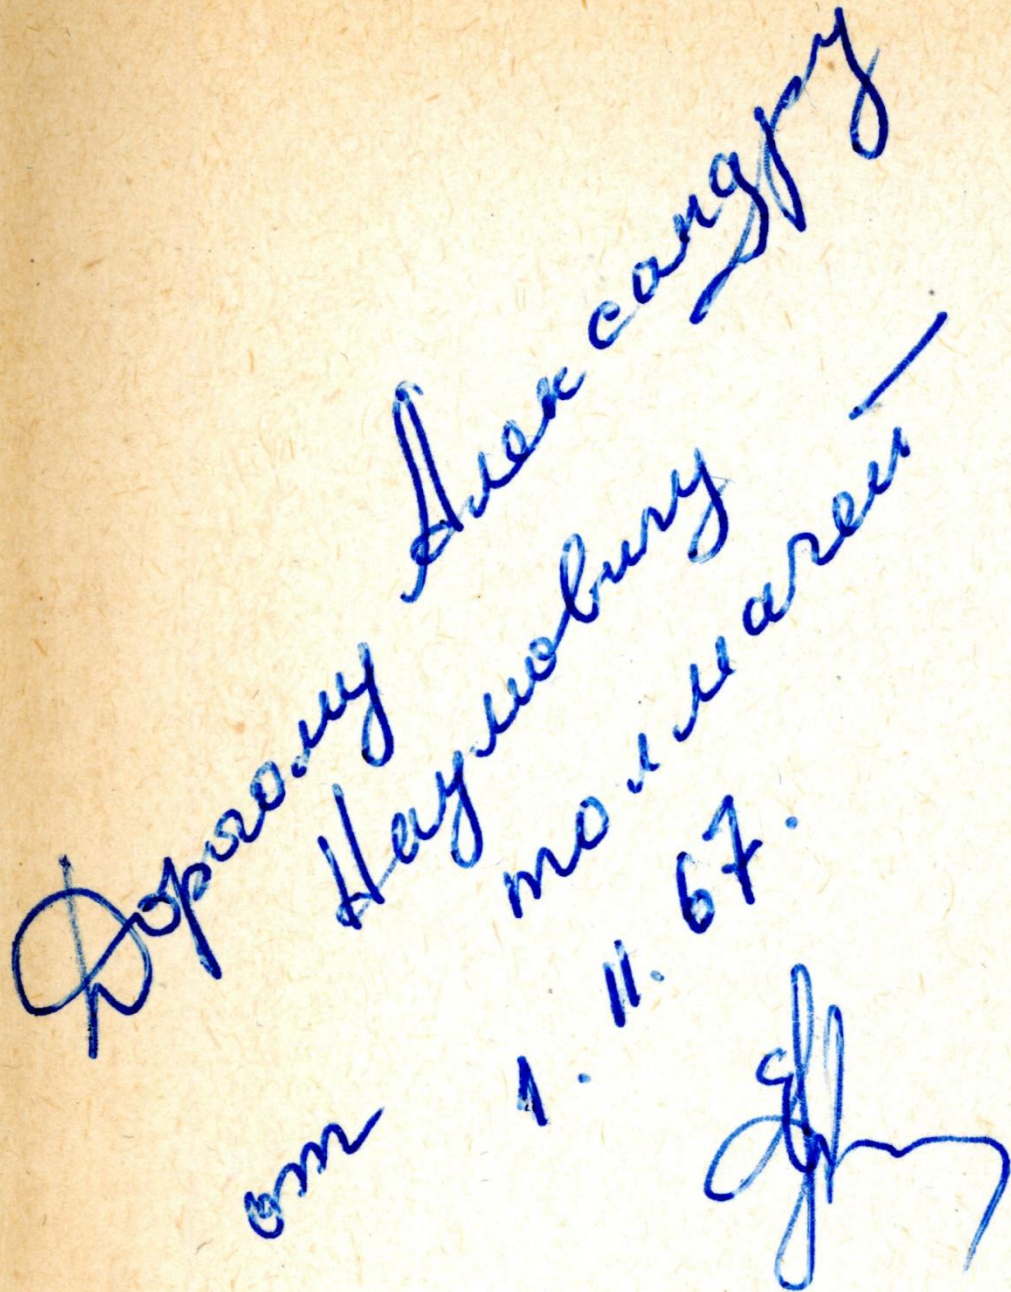 Дорогому Александру
Наумовичу
от толмачей —
1. 11. 67.